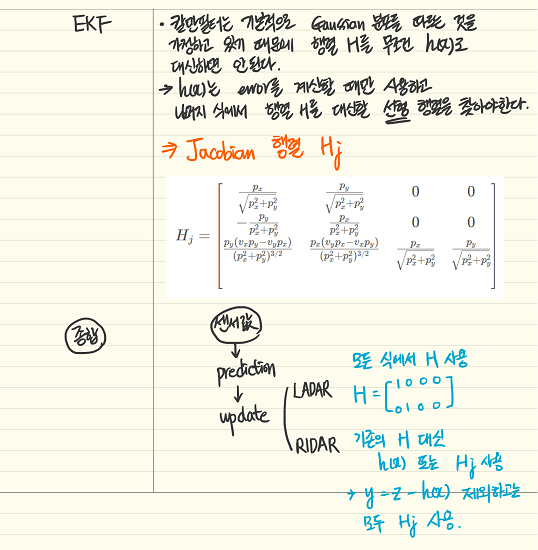 EKF
• 칼만필터는 기본적으로 Gaussian 분포를 따르는 것을
가정하고 있기 때문에 행렬 H를 무조건 h(x)로
대신하면 안된다.
→ h(x)는 error를 계산할 때만 사용하고
나머지 식에서 행렬 H를 대신할 선형 행렬을 찾아야한다.
⇒ Jacobian 행렬 Hj
H_j = [ p_x/√(p_x²+p_y²) p_y/√(p_x²+p_y²) 0 0
-p_y/(p_x²+p_y²) p_x/(p_x²+p_y²) 0 0
p_y(v_x p_y − v_y p_x)/(p_x²+p_y²)^{3/2} p_x(v_y p_x − v_x p_y)/(p_x²+p_y²)^{3/2} p_x/√(p_x²+p_y²) p_y/√(p_x²+p_y²) ]
종합
센서값
↓
prediction
↓
update
LADAR
모든 식에서 H 사용
H = [1 0 0 0
0 1 0 0]
RIDAR
기존의 H 대신
h(x) 또는 Hj 사용
→ y = z - h(x) 제외하고는
모두 Hj 사용.